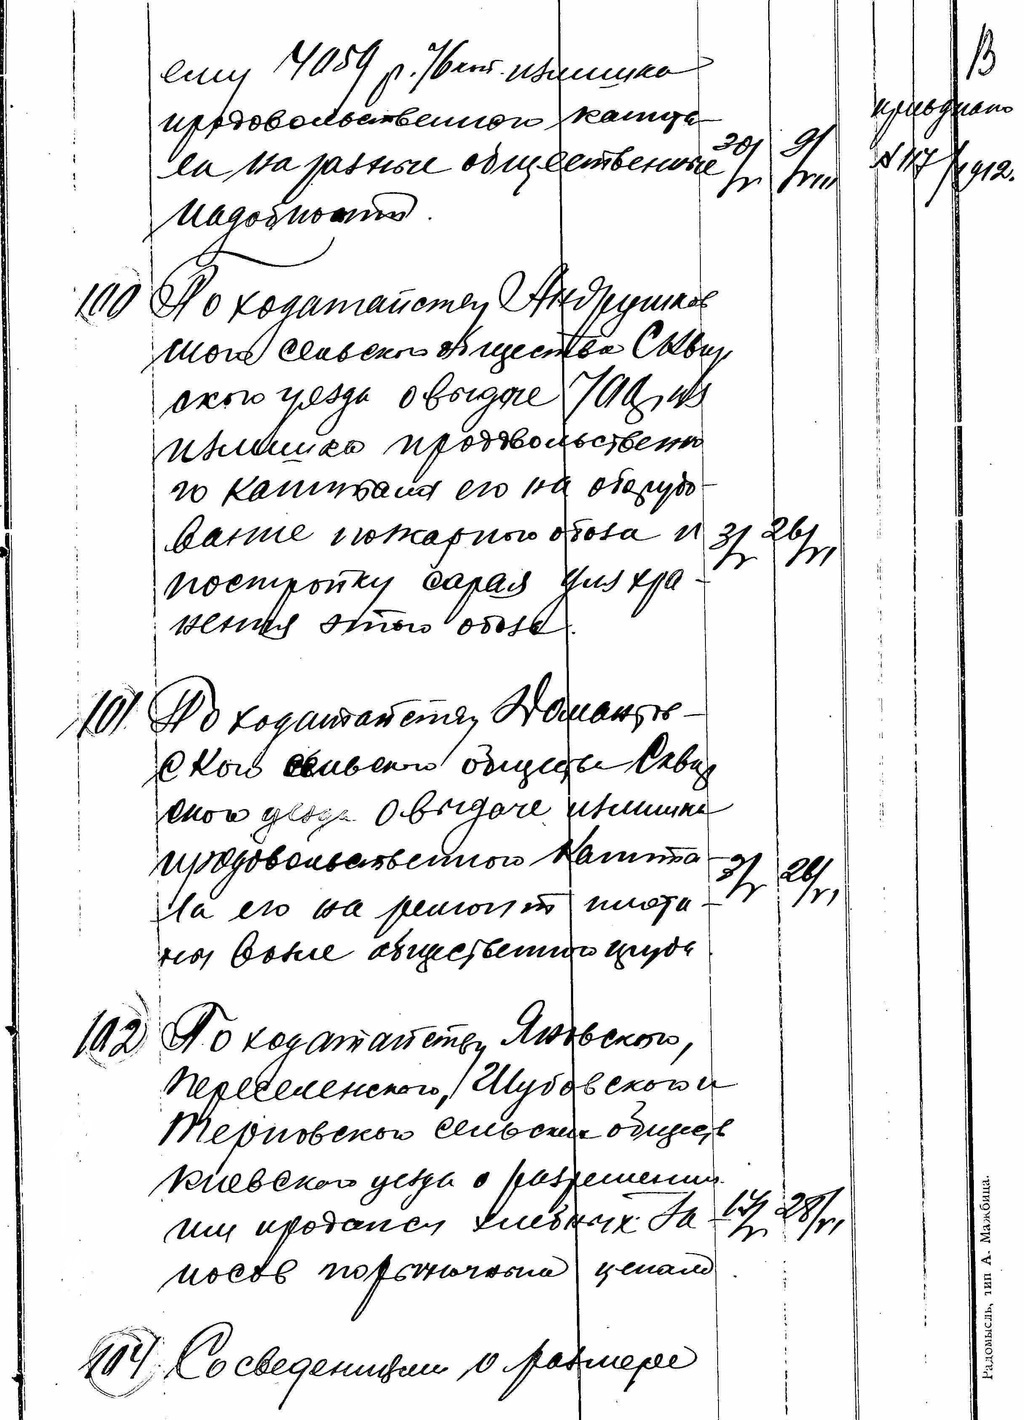 ему 7059 р. 76 коп. излишка
продовольственного капита-
ла на разные общественные 30/V 9/VIII
надобности.
В
№ 117/1912.
100 По ходатайству Андрушков
ского сельского общества Сквир
ского уезда о выдаче 700 р. из
излишка продовольственно
го капитала его на оборудо-
вание пожарного обоза и 3/V 26/VI
постройку сарая для хра-
нения этого обоза.
101 По ходатайству Домантов-
ского сельского общества Сквир
ского уезда о выдаче излишка
продовольственного капита- 3/V 26/VI
ла его на ремонт плоти-
ны возле общественного пруда.
102 По ходатайству Яновского,
Переселенского, Шубовского и
Терновского сельских обществ
Киевского уезда о разрешении
им продажи хлебных за- 17/V 28/VI
пасов по рыночным ценам.
104 Со сведениями о размере
Радомысль, тип А. Мажбица.